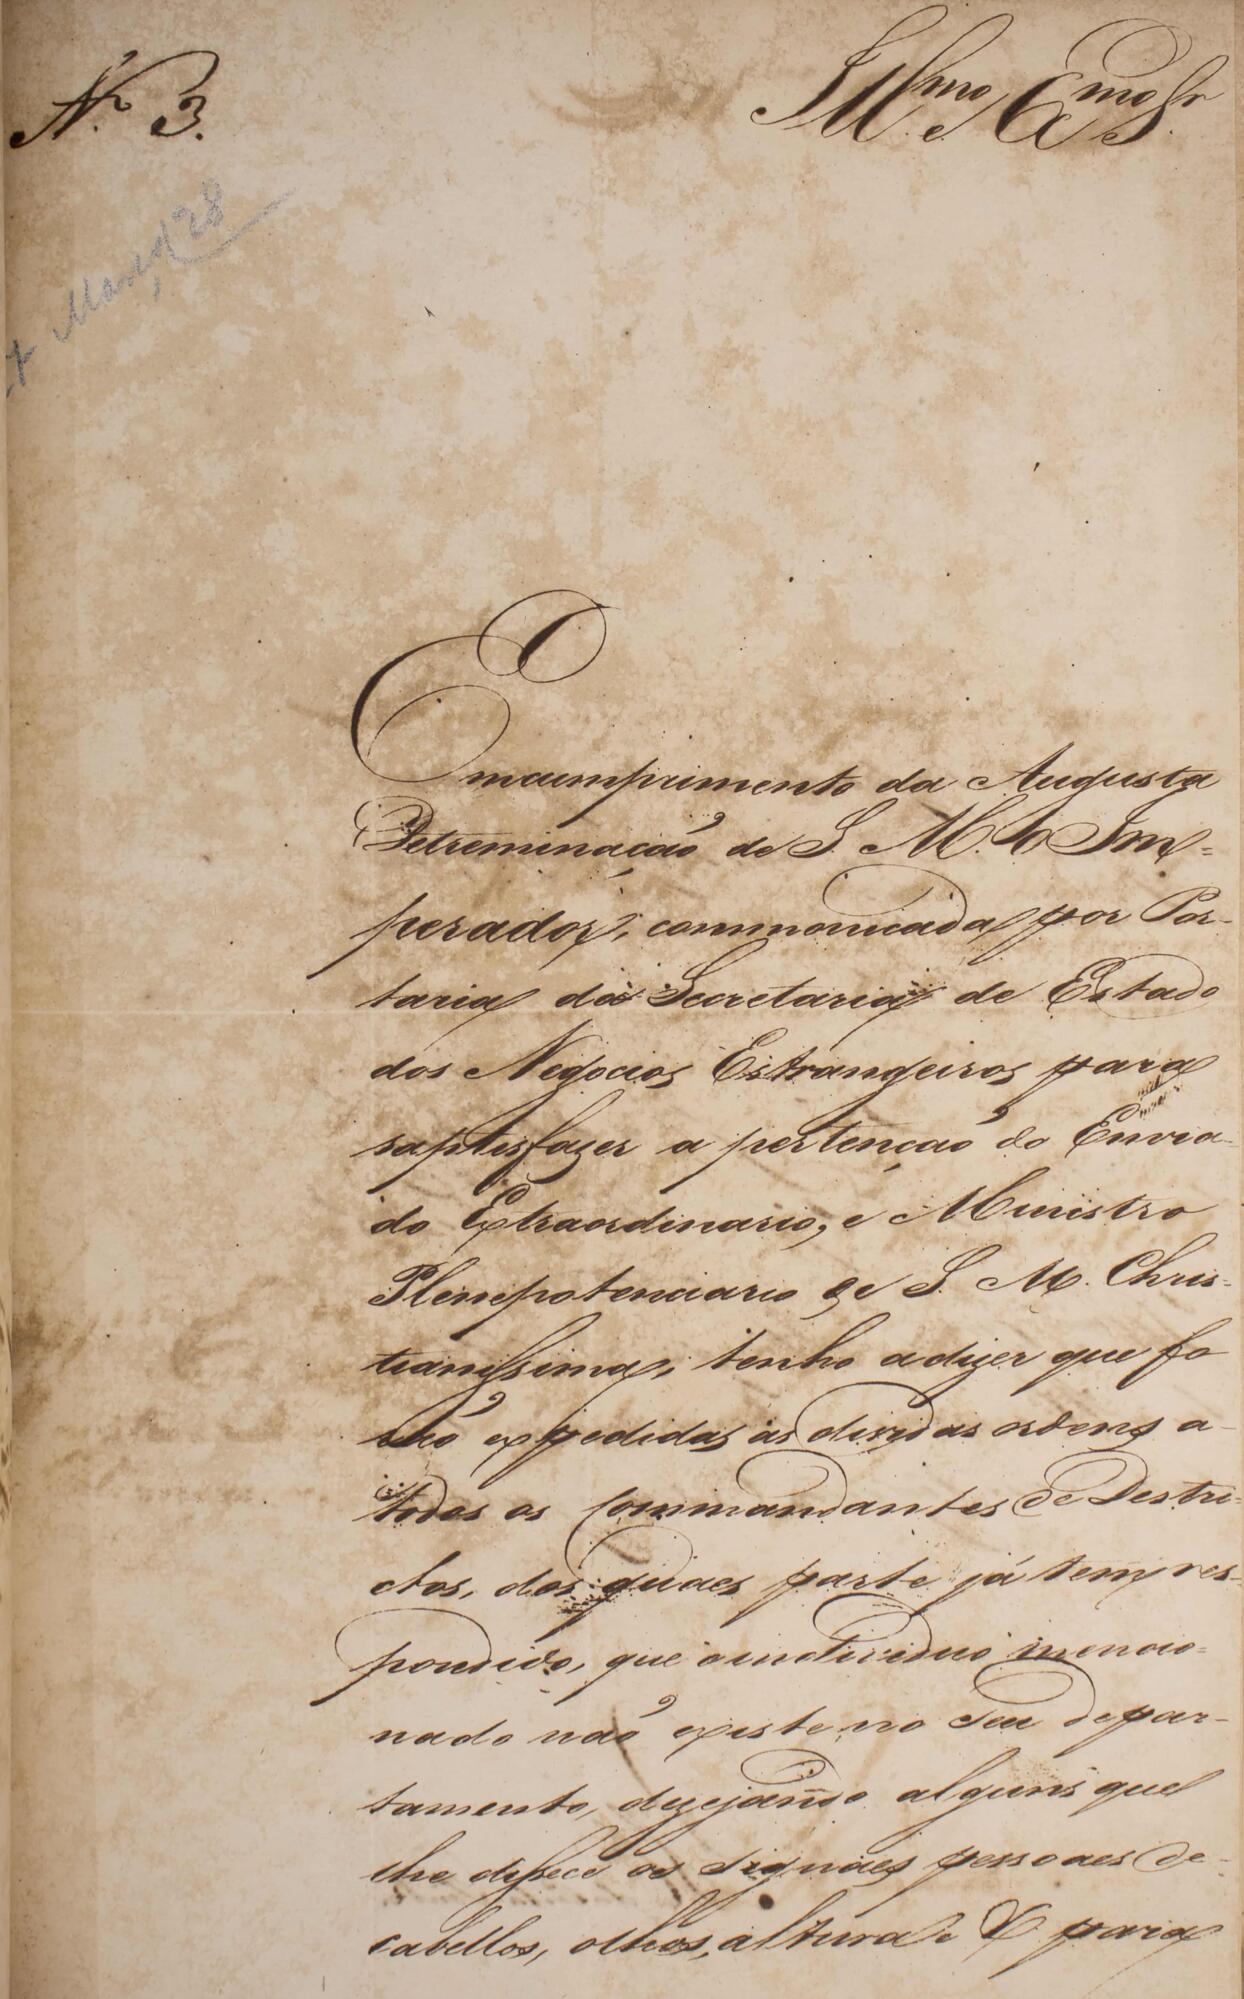 N.º 3.
Ill.mo e Ex.mo Sr.
Març 28
Emcumprimento da Augusta
Detreminação de S. M. o Im=
perador, communicada por Por-
taria da Secretaria de Estado
dos Negocios Estrangeiros para
saptisfazer a pertenção do Envia-
do Extraordinario, e Ministro
Plenepotenciario de S. M. Chris-
tianissima, tenho a dizer que fo
rão expedidas as dividas ordens a-
todos os Commandantes de Destri-
ctos, dos quaes parte já tem res-
pondido, que o individuo mencio=
nado não existe no seu depar-
tamento, dezejando alguns que
lhe disece os signaes pessoaes de-
cabellos, olhos, altura e &c para